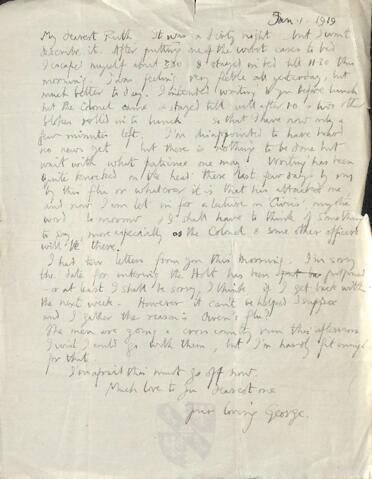 Jan. 1. 1919
My dearest Ruth It was a dirty night but I won't
describe it. After putting one of the worst cases to bed
I escaped myself about 3.30 & stayed in bed till 11.30 this
morning. I am feeling very feeble all yesterday, but
much better to-day. I intended writing to you before lunch
but the Colonel came & stayed till well after 10 & two other
blokes rolled in to lunch so that I have now only a
few minutes left. I'm disappointed to have heard
no news yet but there is nothing to be done but
wait with what patience one may. Writing has been
quite knocked on the head these last few days by
by this flu or whatever it is that has attacked me
and now I am let in for a lecture on 'Civics', my
word to-morrow, & I shall have to think of something
to say, more especially as the Colonel & some other officers
will be there.
I had two letters from you this morning. I'm sorry
the date for entering the Holt has been postponed
- or at least I shall be sorry, I think if I get back within
the next week. However it can't be helped I suppose
and I gather the reason is Owen's flu?
The men are going a cross country run this afternoon
I wish I could go with them, but I'm hardly fit enough
for that.
I'm afraid this must go off now.
Much love to you dearest one
Your loving George.